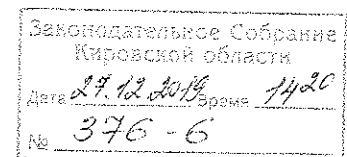 Законодательное Собрание
Кировской области
Дата 27.12.2019 Время 14 20
№ 376-6